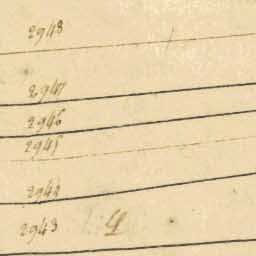 2948
2947
2946
2945
2944
2943 4